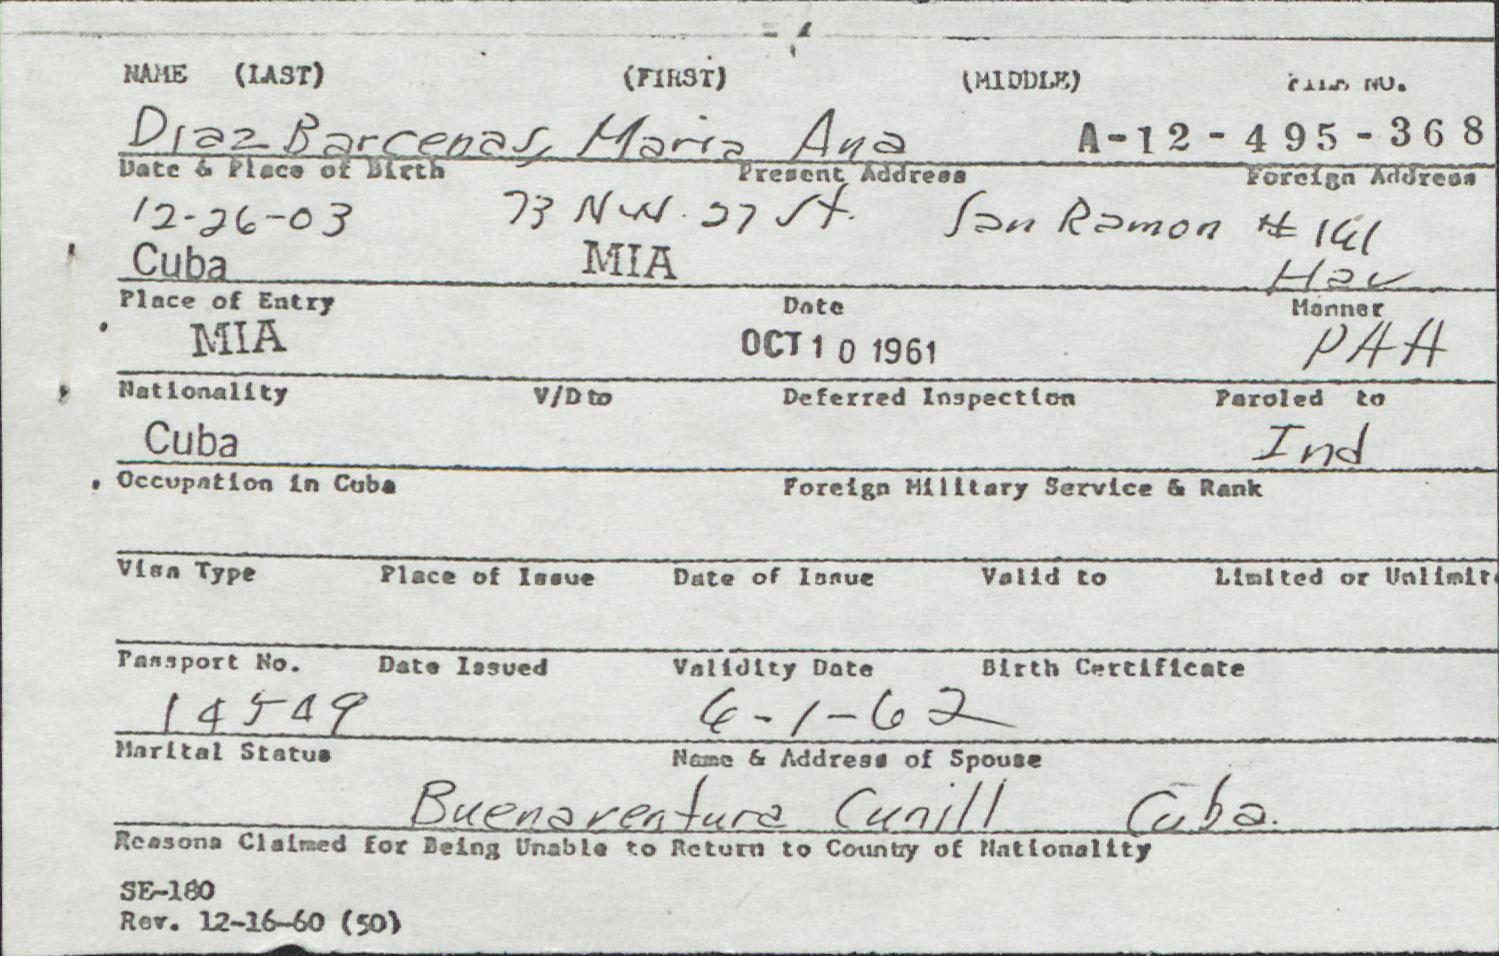 NAME (LAST) (FIRST) (MIDDLE) FILE NO.
Diaz Barcenas, Maria Ana A-12-495-368
Date & Place of Birth Present Address Foreign Address
12-26-03 73 N.W. 27 St. San Ramon # 161
Cuba MIA Hav
Place of Entry Date Manner
MIA OCT 10 1961 PAA
Nationality V/D to Deferred Inspection Paroled to
Cuba Ind
Occupation in Cuba Foreign Military Service & Rank
Visa Type Place of Issue Date of Issue Valid to Limited or Unlimit
Passport No. Date Issued Validity Date Birth Certificate
14549 6-1-62
Marital Status Name & Address of Spouse
Buenaventura Cunill Cuba.
Reasons Claimed for Being Unable to Return to County of Nationality
SE-180
Rev. 12-16-60 (50)